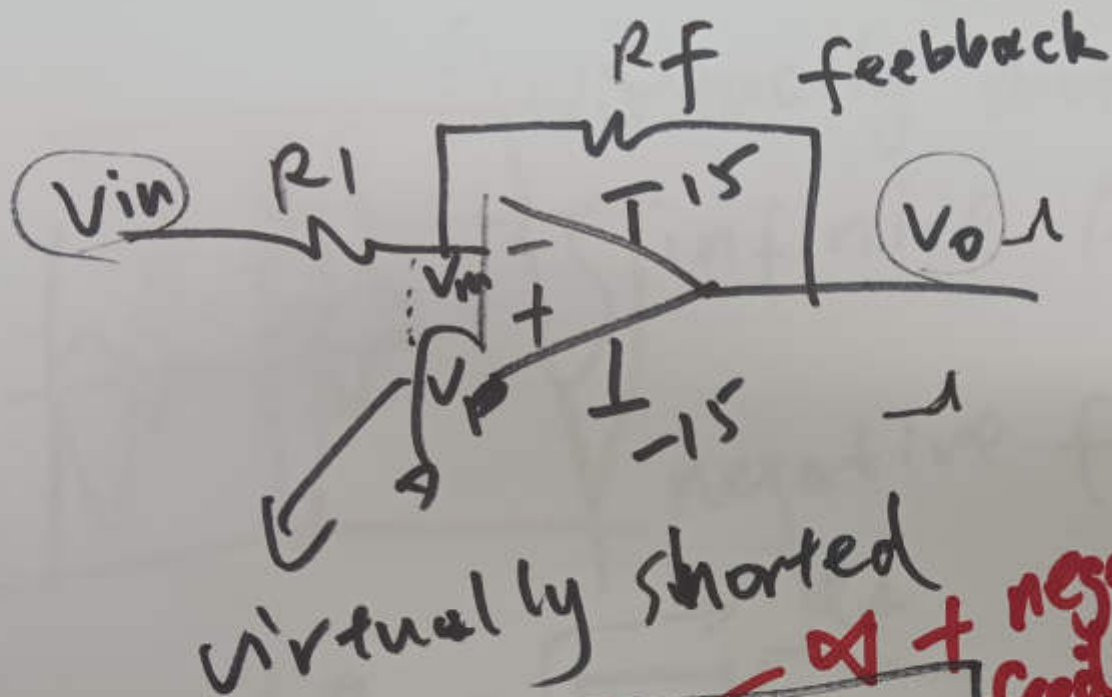 Rf feebback
Vin R1
15
Vm - Vo
+
Vp
-15
virtually shorted
∞ + neg